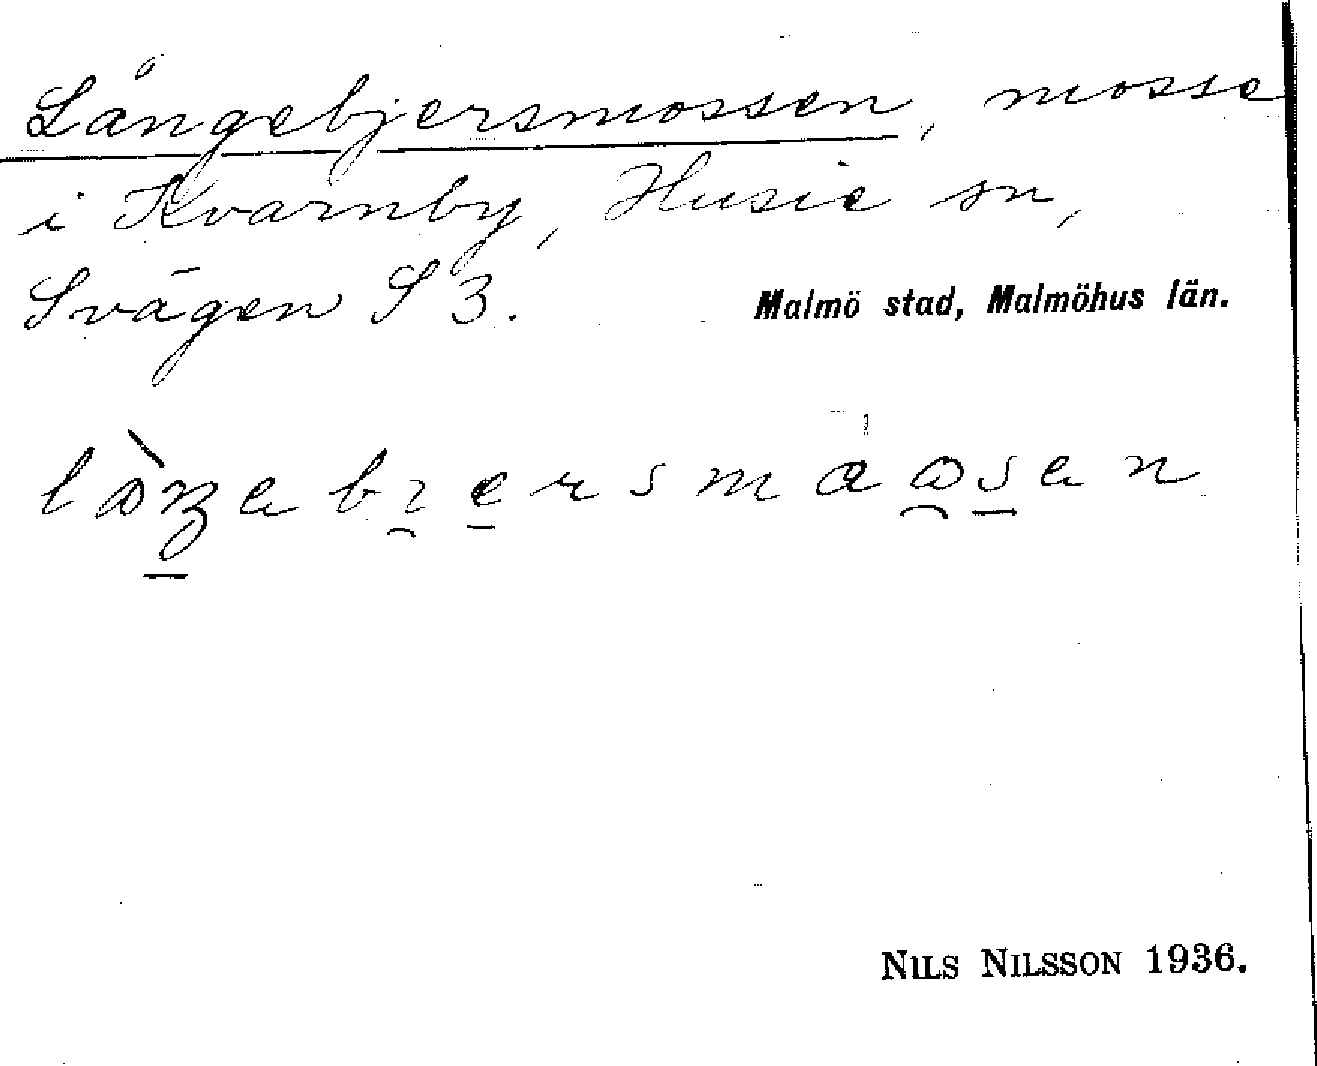 Långebjersmossen, mosse
i Kvarnby, Husie sn,
Svågen S 3. Malmö stad, Malmöhus län.
NILS NILSSON 1936.